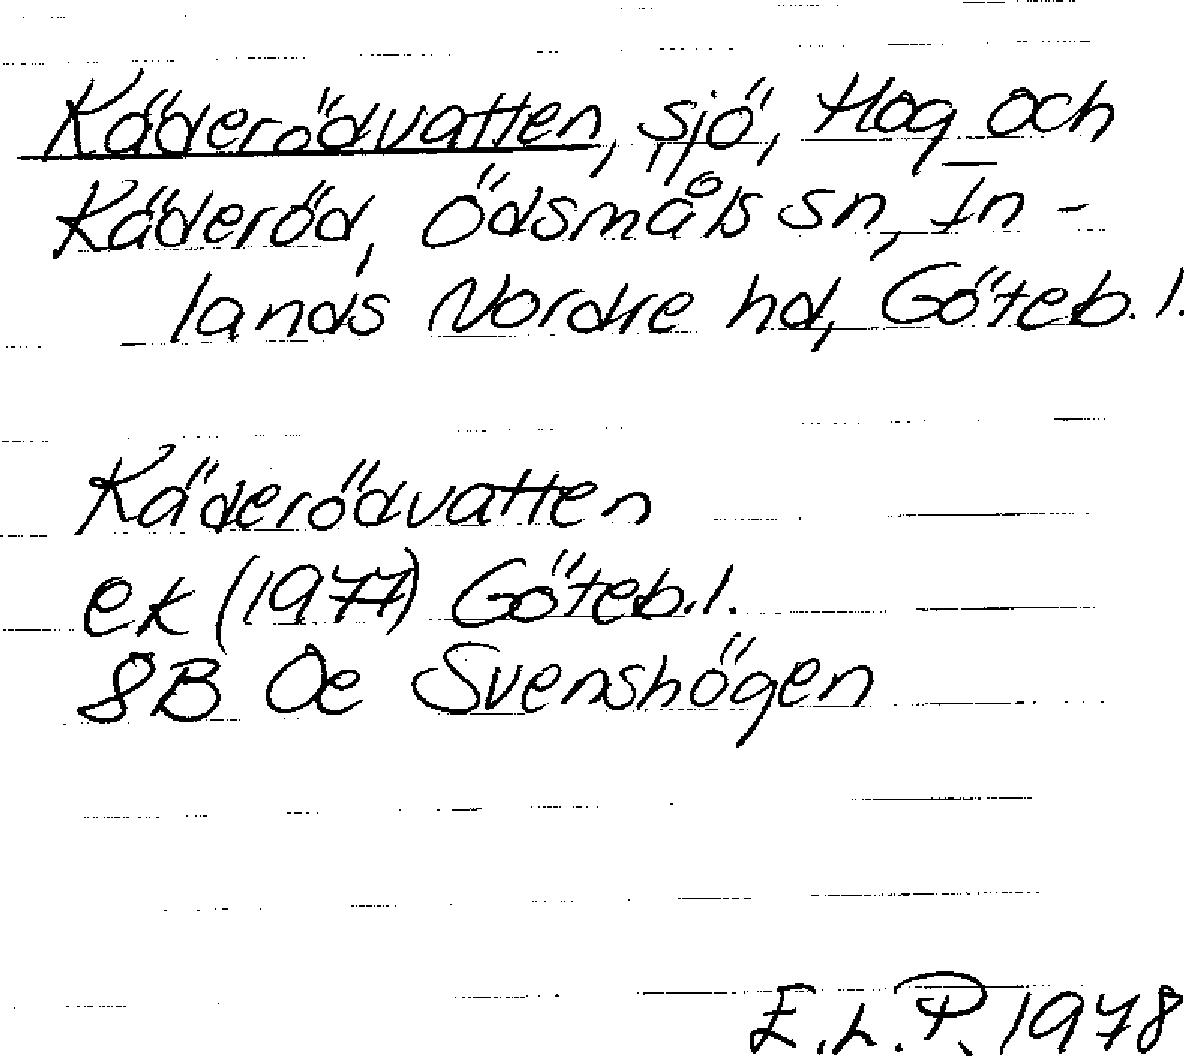 Käderödvatten, sjö, Hog och
Käderöd, Ödsmåls sn, In-
lands Nordre hd, Göteb. l.
Käderödvatten
ek (1977) Göteb. l.
8B Oe Svenshögen
E.L.P. 1978